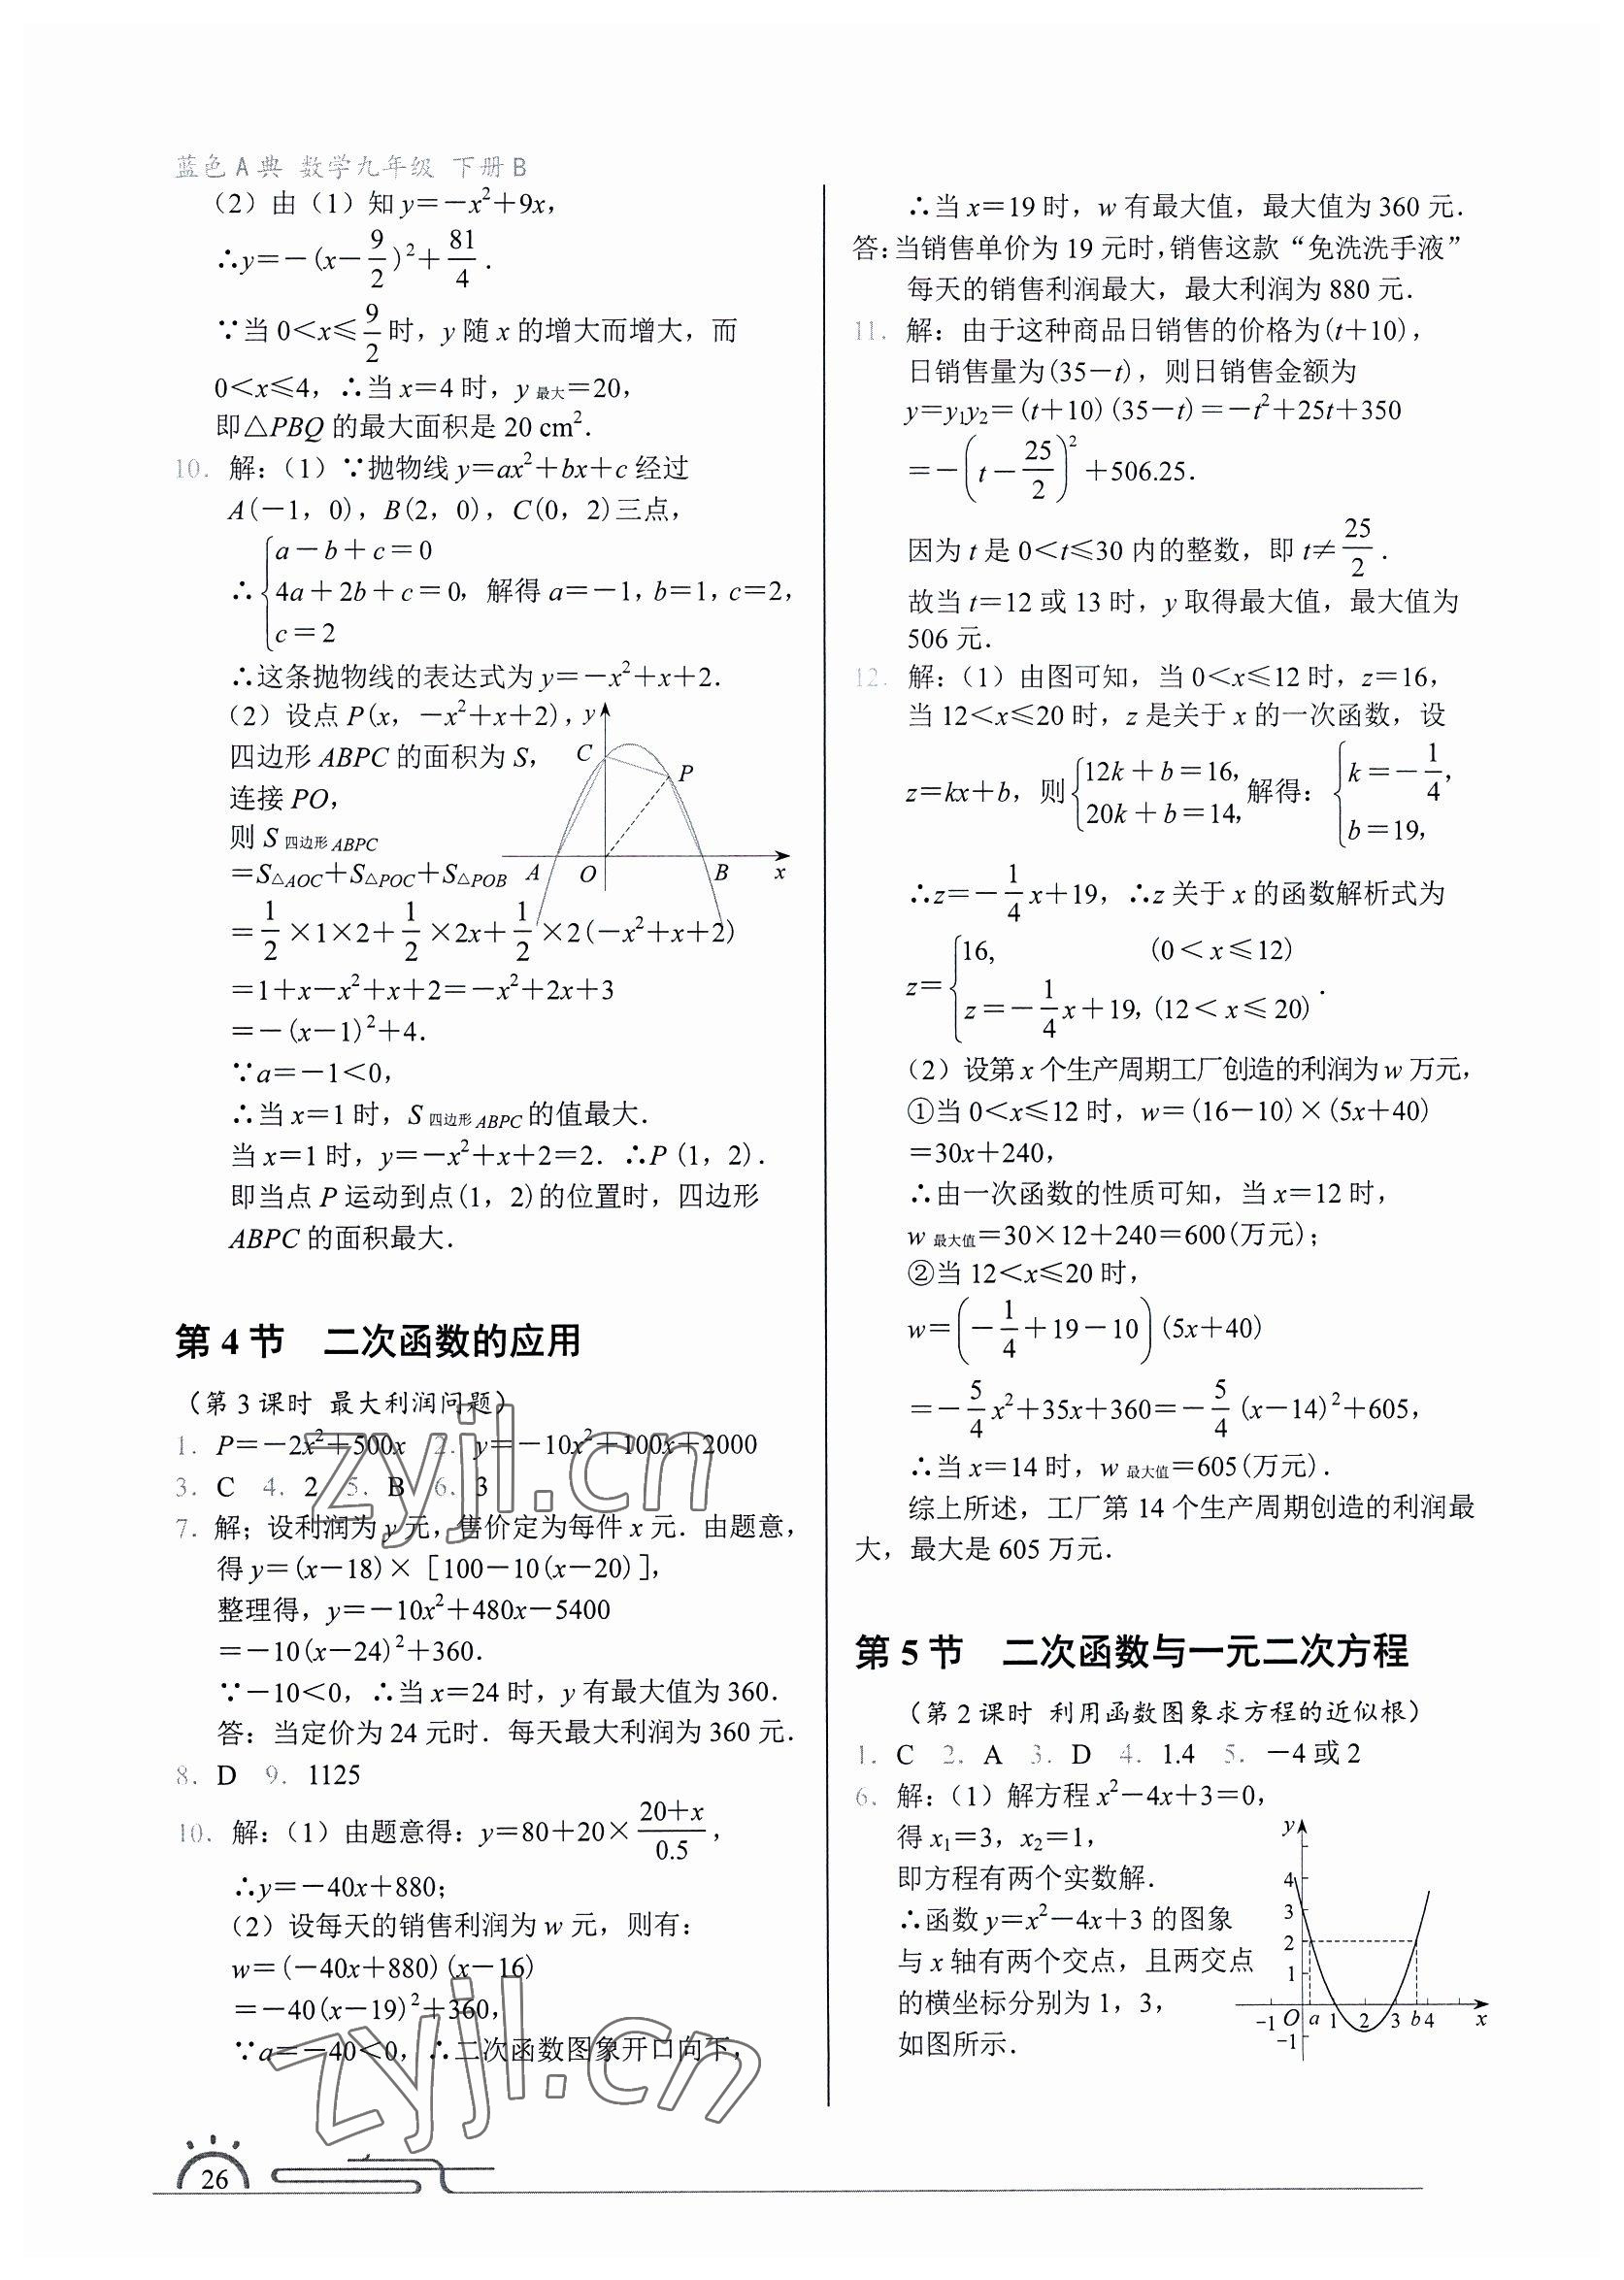 蓝色A典 数学九年级 下册B
（2）由（1）知 y=−x²+9x，
∴y=−(x−9/2)²+81/4．
∵当 0＜x≤9/2时，y 随 x 的增大而增大，而
0＜x≤4，∴当 x=4 时，y 最大=20，
即△PBQ 的最大面积是 20 cm²．
10．解：（1）∵抛物线 y=ax²+bx+c 经过
A(−1，0)，B(2，0)，C(0，2)三点，
∴{a−b+c=0
4a+2b+c=0，解得 a=−1，b=1，c=2，
c=2
∴这条抛物线的表达式为 y=−x²+x+2．
（2）设点 P(x，−x²+x+2)，
四边形 ABPC 的面积为 S，
连接 PO，
则 S 四边形 ABPC
=S△AOC+S△POC+S△POB
y
C
P
A
O
B
x
=1/2×1×2+1/2×2x+1/2×2(−x²+x+2)
=1+x−x²+x+2=−x²+2x+3
=−(x−1)²+4．
∵a=−1＜0，
∴当 x=1 时，S 四边形 ABPC 的值最大．
当 x=1 时，y=−x²+x+2=2．∴P (1，2)．
即当点 P 运动到点(1，2)的位置时，四边形
ABPC 的面积最大．
第 4 节 二次函数的应用
（第 3 课时 最大利润问题）
1．P=−2x²+500x 2．y=−10x²+100x+2000
3．C 4．2 5．B 6．3
7．解；设利润为 y 元，售价定为每件 x 元．由题意，
得 y=(x−18)×［100−10(x−20)］，
整理得，y=−10x²+480x−5400
=−10(x−24)²+360．
∵−10＜0，∴当 x=24 时，y 有最大值为 360．
答：当定价为 24 元时．每天最大利润为 360 元．
8．D 9．1125
10．解：（1）由题意得：y=80+20×(20+x)/0.5，
∴y=−40x+880；
（2）设每天的销售利润为 w 元，则有：
w=(−40x+880)(x−16)
=−40(x−19)²+360，
∵a=−40＜0，∴二次函数图象开口向下，
∴当 x=19 时，w 有最大值，最大值为 360 元．
答：当销售单价为 19 元时，销售这款“免洗洗手液”
每天的销售利润最大，最大利润为 880 元．
11．解：由于这种商品日销售的价格为(t+10)，
日销售量为(35−t)，则日销售金额为
y=y₁y₂=(t+10)(35−t)=−t²+25t+350
=−(t−25/2)²+506.25．
因为 t 是 0＜t≤30 内的整数，即 t≠25/2．
故当 t=12 或 13 时，y 取得最大值，最大值为
506 元．
12．解：（1）由图可知，当 0＜x≤12 时，z=16，
当 12＜x≤20 时，z 是关于 x 的一次函数，设
z=kx+b，则{12k+b=16，20k+b=14，解得：{k=−1/4，b=19，
∴z=−1/4x+19，∴z 关于 x 的函数解析式为
z={16， (0＜x≤12)
z=−1/4x+19，(12＜x≤20)．
（2）设第 x 个生产周期工厂创造的利润为 w 万元，
①当 0＜x≤12 时，w=(16−10)×(5x+40)
=30x+240，
∴由一次函数的性质可知，当 x=12 时，
w 最大值=30×12+240=600(万元)；
②当 12＜x≤20 时，
w=(−1/4+19−10)(5x+40)
=−5/4x²+35x+360=−5/4(x−14)²+605，
∴当 x=14 时，w 最大值=605(万元)．
综上所述，工厂第 14 个生产周期创造的利润最
大，最大是 605 万元．
第 5 节 二次函数与一元二次方程
（第 2 课时 利用函数图象求方程的近似根）
1．C 2．A 3．D 4．1.4 5．−4 或 2
6．解：（1）解方程 x²−4x+3=0，
得 x₁=3，x₂=1，
即方程有两个实数解．
∴函数 y=x²−4x+3 的图象
与 x 轴有两个交点，且两交点
的横坐标分别为 1，3，
如图所示．
y
4
3
2
1
−1 O a 1 2 3 b 4 x
−1
zyjl.cn
zyjl.cn
26